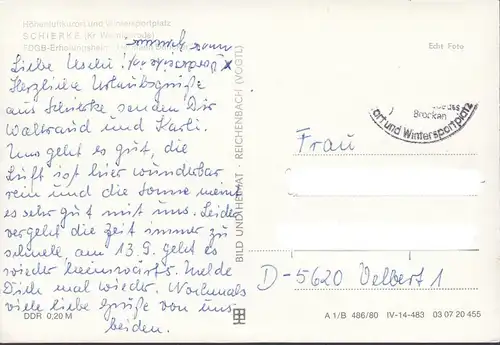 Höhenluftkurort und Wintersportplatz
SCHIERKE (Kr. Wernigerode)
FDGB-Erholungsheim
Liebe Uschi!
Herzliche Urlaubsgrüße
aus Schierke senden Dir
Waltraud und Karli.
Uns geht es gut, die
Luft ist hier wunderbar
rein und die Sonne meint
es sehr gut mit uns. Leider
vergeht die Zeit immer zu
schnell, am 13.9. geht es
wieder heimwärts. Melde
Dich mal wieder. Nochmals
viele liebe Grüße von uns
beiden.
DDR 0,20 M
BILD UND HEIMAT · REICHENBACH (VOGTL)
Echt Foto
Brocken
ort und Wintersportplatz
Frau
D-5620 Velbert 1
A 1/B 486/80 IV-14-483 03 07 20 455